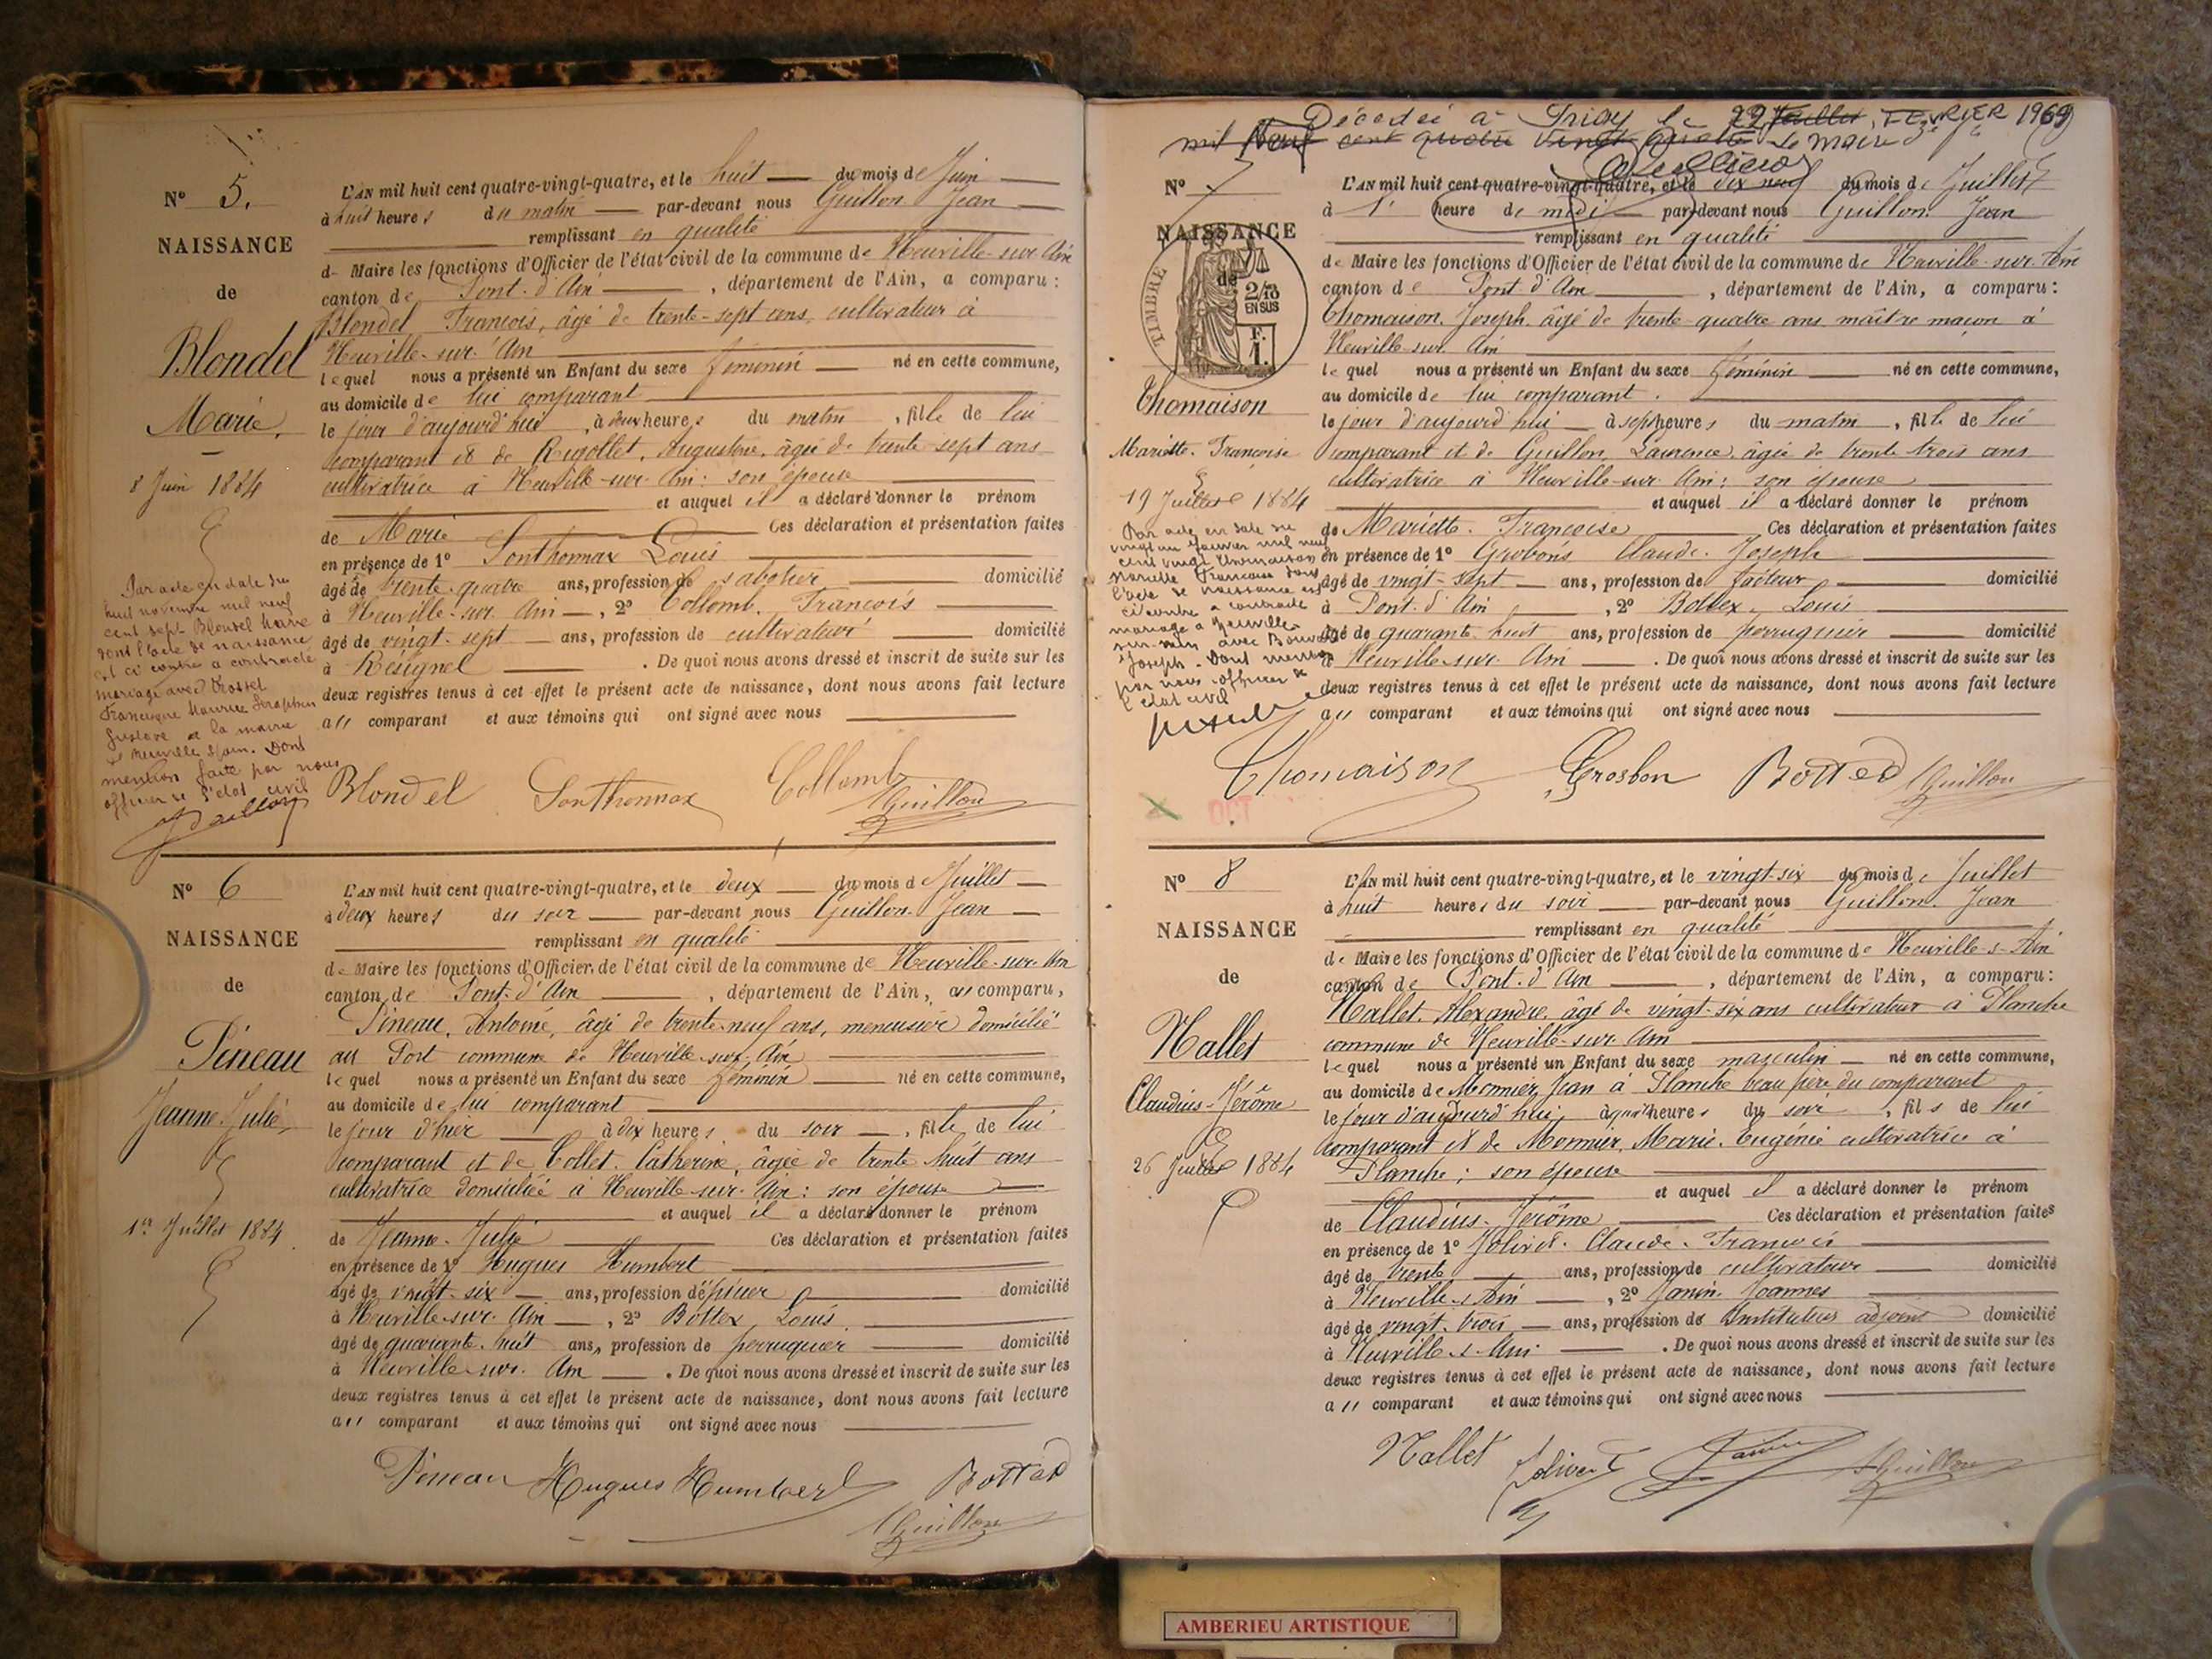 N° 5.
NAISSANCE
de
Blondel
Marie.
8 Juin 1884
Par acte en date du
huit novembre mil neuf
cent sept Blondel Marie
dont l'acte de naissance
est ci contre a contracté
mariage avec Trosset
Francisque Maurice Séraphin
Gustave à la mairie
de Neuville s/ain. Dont
mention faite par nous
officier de l'état civil
L'AN mil huit cent quatre-vingt-quatre, et le huit du mois de Juin
à huit heures du matin par-devant nous Guillon Jean
remplissant en qualité
de Maire les fonctions d'Officier de l'état civil de la commune de Neuville-sur-Ain
canton de Pont-d'Ain, département de l'Ain, a comparu :
Blondel, François, âgé de trente-sept ans, cultivateur à
Neuville-sur-Ain
lequel nous a présenté un Enfant du sexe féminin né en cette commune,
au domicile de lui comparant
le jour d'aujourd'hui, à deux heures du matin, fille de lui
comparant et de Rigollet, Augustine, âgée de trente-sept ans
cultivatrice à Neuville-sur-Ain : son épouse
et auquel il a déclaré donner le prénom
de Marie Ces déclaration et présentation faites
en présence de 1° Sonthonnax Louis
âgé de trente-quatre ans, profession de sabotier domicilié
à Neuville-sur-Ain, 2° Collomb, François
âgé de vingt-sept ans, profession de cultivateur domicilié
à Résignel. De quoi nous avons dressé et inscrit de suite sur les
deux registres tenus à cet effet le présent acte de naissance, dont nous avons fait lecture
au comparant et aux témoins qui ont signé avec nous
Blondel Sonthonnax Collomb
Guillon
N° 6
NAISSANCE
de
Pineau
Jeanne-Julie
1er Juillet 1884
L'AN mil huit cent quatre-vingt-quatre, et le deux du mois de Juillet
à deux heures du soir par-devant nous Guillon Jean
remplissant en qualité
de Maire les fonctions d'Officier de l'état civil de la commune de Neuville-sur-Ain
canton de Pont-d'Ain, département de l'Ain, a comparu,
Pineau, Antoine, âgé de trente-neuf ans, menuisier domicilié
au Port commune de Neuville-sur-Ain
lequel nous a présenté un Enfant du sexe féminin né en cette commune,
au domicile de lui comparant
le jour d'hier à dix heures du soir, fille de lui
comparant et de Collet, Catherine, âgée de trente-huit ans
cultivatrice domiciliée à Neuville-sur-Ain : son épouse
et auquel il a déclaré donner le prénom
de Jeanne-Julie Ces déclaration et présentation faites
en présence de 1° Hugues Humbert
âgé de vingt-six ans, profession d'épicier domicilié
à Neuville-sur-Ain, 2° Bottex, Louis
âgé de quarante-huit ans, profession de perruquier domicilié
à Neuville-sur-Ain. De quoi nous avons dressé et inscrit de suite sur les
deux registres tenus à cet effet le présent acte de naissance, dont nous avons fait lecture
au comparant et aux témoins qui ont signé avec nous
Pineau Hugues Humbert Bottex
Guillon
Décédée à Priay le 22 Juillet FEVRIER 1969
mil Neuf cent quatre vingt quatre Le Maire
N° 7
NAISSANCE
de
TIMBRE
2/10
EN SUS
F.
1.
Thomaison
Mariette-Françoise
19 Juillet 1884
Par acte en date du
vingt un Janvier mil neuf
cent vingt Thomaison
Mariette Françoise dont
l'acte de naissance est
ci contre a contracté
mariage à Neuville
sur-Ain avec
Joseph. Dont mention
par nous officier de
l'état civil
L'AN mil huit cent quatre-vingt-quatre, et le dix neuf du mois de Juillet
à 1 heure de midi par-devant nous Guillon Jean
remplissant en qualité
de Maire les fonctions d'Officier de l'état civil de la commune de Neuville-sur-Ain
canton de Pont d'Ain, département de l'Ain, a comparu :
Thomaison, Joseph, âgé de trente-quatre ans maître maçon à
Neuville-sur-Ain
lequel nous a présenté un Enfant du sexe féminin né en cette commune,
au domicile de lui comparant.
le jour d'aujourd'hui à sept heures du matin, fille de lui
comparant et de Guillon, Laurence, âgée de trente trois ans
cultivatrice à Neuville-sur-Ain : son épouse
et auquel il a déclaré donner le prénom
de Mariette-Françoise Ces déclaration et présentation faites
en présence de 1° Grobons Claude-Joseph
âgé de vingt-sept ans, profession de facteur domicilié
à Pont-d'Ain, 2° Bottex, Louis
âgé de quarante-huit ans, profession de perruquier domicilié
à Neuville-sur-Ain. De quoi nous avons dressé et inscrit de suite sur les
deux registres tenus à cet effet le présent acte de naissance, dont nous avons fait lecture
au comparant et aux témoins qui ont signé avec nous
Thomaison Grosbon Bottex Guillon
OCT
N° 8
NAISSANCE
de
Nallet
Claudius-Jérôme
26 Juillet 1884
L'AN mil huit cent quatre-vingt-quatre, et le vingt-six du mois de Juillet
à huit heures du soir par-devant nous Guillon Jean
remplissant en qualité
de Maire les fonctions d'Officier de l'état civil de la commune de Neuville-s-Ain
canton de Pont-d'Ain, département de l'Ain, a comparu :
Nallet, Alexandre, âgé de vingt-six ans cultivateur à Planche
commune de Neuville-sur-Ain
lequel nous a présenté un Enfant du sexe masculin né en cette commune,
au domicile de Monnier, Jean à Planche beau père du comparant
le jour d'aujourd'hui, à heures du soir, fils de lui
comparant et de Monnier, Marie-Eugénie cultivatrice à
Planche ; son épouse
et auquel il a déclaré donner le prénom
de Claudius-Jérôme Ces déclaration et présentation faites
en présence de 1° Jolivet-Claude-François
âgé de trente ans, profession de cultivateur domicilié
à Neuville s Ain, 2° Janin Joannes
âgé de vingt-trois ans, profession de Instituteur adjoint domicilié
à Neuville-s-Ain. De quoi nous avons dressé et inscrit de suite sur les
deux registres tenus à cet effet le présent acte de naissance, dont nous avons fait lecture
au comparant et aux témoins qui ont signé avec nous
Nallet Jolivet Janin Guillon
AMBERIEU ARTISTIQUE